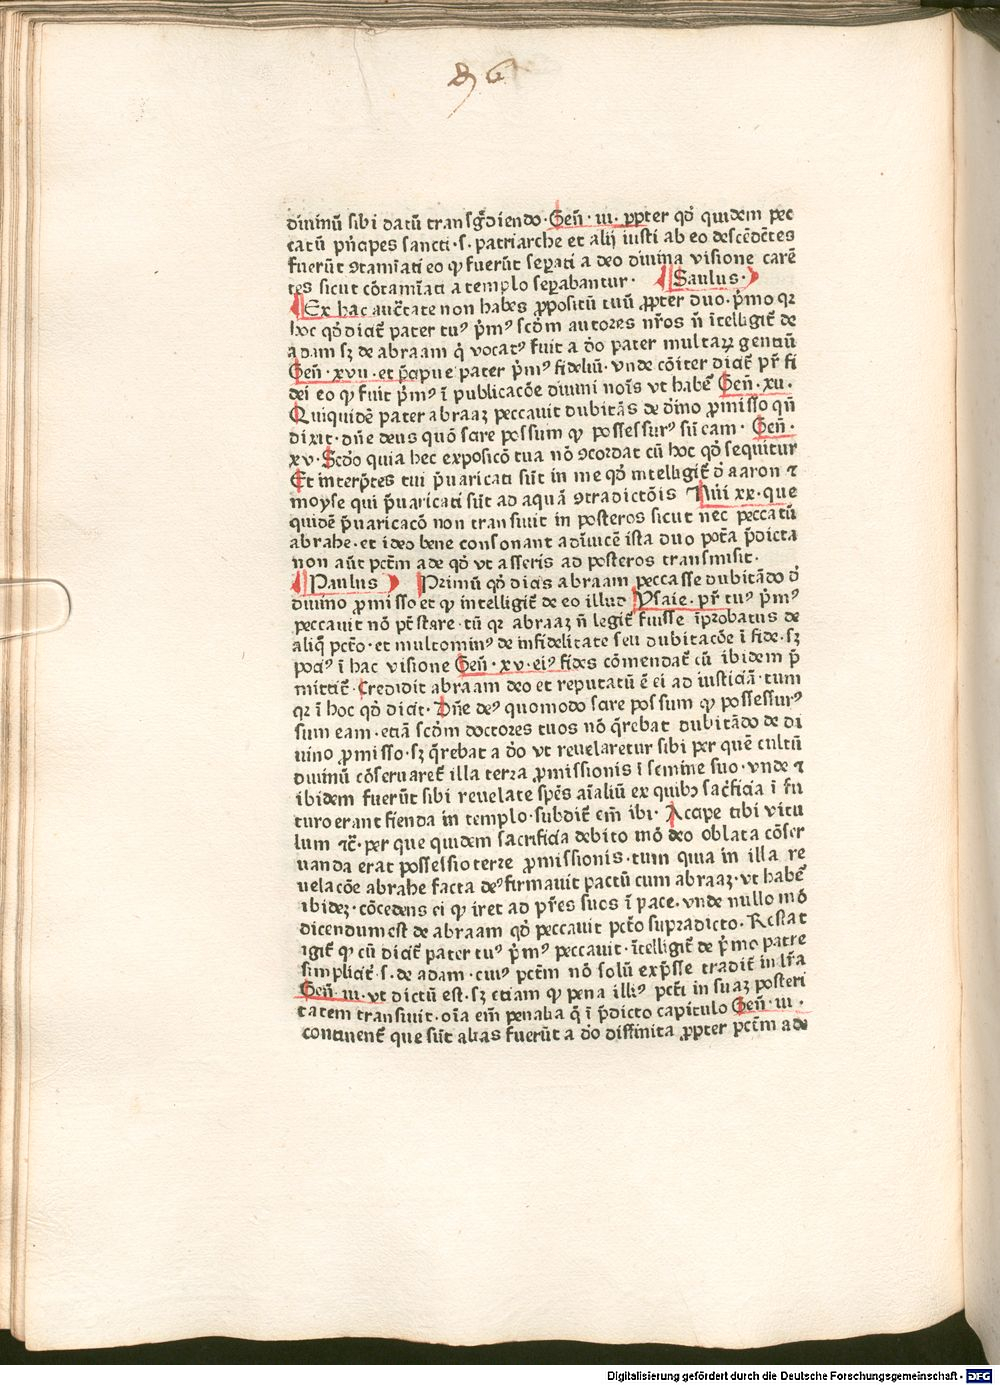 86
diuinū sibi datū transgr̄diendo · Geñ · iii · ꝓpter qđ quidem pec
catū pñcipes sancti · s · patriarche et alij iusti ab eo descēdētes
fuerūt ꝯtamīati eo ꝙ fuerūt seꝑati a deo diuina visione carē
tes sicut cōtamīati a templo seꝑabantur · Saulus ·
Ex hac auc̄tate non habes ꝓpositū tuū ꝓpter duo · p̄mo qꝛ
hoc qđ dicit̄ pater tuꝰ p̄mꝰ scđm autores nr̄os ñ ītelligit̄ de
adam sꝫ de abraam q̇ vocatꝰ fuit a đo pater multaꝝ gentiū
Geñ · xvii · et p̄cipue pater p̄mꝰ fideliū · vnde cōiter dicit̄ pr̄ fi
dei eo ꝙ fuit p̄mꝰ ī publicacōe diuini noīs vt habet̄ Geñ · xii ·
Quiquidē pater abraaꝫ peccauit dubitās de đino ꝓmisso qñ
dixit · dñe deus quō scire possum ꝙ possessurꝰ sū eam · Geñ ·
xv · Scđo quia hec exposicō tua nō ꝯcordat cū hoc qđ sequitur
Et interp̄tes tui p̄uaricati sūt in me qđ intelligit̄ đ aaron ⁊
moyse qui p̄uaricati sūt ad aquā ꝯtradictōis Nūi xx · que
quidē p̄uaricacō non transiuit in posteros sicut nec peccatū
abrahe · et ideo bene consonant adīuicē ista duo pōta p̄dicta
non aūt pctm̄ ade qđ vt asseris ad posteros transmisit ·
Paulus Primū qđ dicis abraam peccasse dubitādo đ
diuino ꝓmisso et ꝙ intelligit̄ de eo illud Ysaie · pr̄ tuꝰ p̄mꝰ
peccauit nō pōt stare · tū qꝛ abraaꝫ ñ legit̄ fuisse īprobatus de
aliq̄ pctō · et multominꝰ de infidelitate seu dubitacōe ī fide · sꝫ
pociꝰ ī hac visione Geñ · xv · eiꝰ fides cōmendat̄ cū ibidem p̄
mittit̄ · Credidit abraam deo et reputatū ē ei ad iusticiā · tum
qꝛ ī hoc qđ dicit · Dñe deꝰ quomodo scire possum ꝙ possessurꝰ
sum eam · etiā scđm doctores tuos nō q̄rebat dubitādo de di
uino ꝓmisso · sꝫ q̄rebat a đo vt reuelaretur sibi per quē cultū
diuinū cōseruaret̄ illa terra ꝓmissionis ī semine suo · vnde ⁊
ibidem fuerūt sibi reuelate spēs aīaliū ex quibꝫ sacr̄ficia ī fu
turo erant fienda in templo · subdit̄ em̄ ibi · Accipe tibi vitu
lum ⁊c̄ · per que quidem sacrificia debito mō deo oblata cōser
uanda erat possessio terre ꝓmissionis · tum quia in illa re
uelacōe abrahe facta deꝰ firmauit pactū cum abraaꝫ · vt habet̄
ibideꝫ · cōcedens ei ꝙ iret ad pr̄es suos ī pace · vnde nullo mō
dicendum est de abraam qđ peccauit pctō supradicto · Restat
igit̄ ꝙ cū dicit̄ pater tuꝰ p̄mꝰ peccauit · ītelligit̄ de p̄mo patre
simplicit̄ · s · de adam · cuiꝰ pctm̄ nō solū exp̄sse tradit̄ in lr̄a
Geñ · iii · vt dictū est · sꝫ etiam ꝙ pena illiꝰ pct̄i in suaꝫ posteri
tatem transiuit · oīa em̄ penalia q̄ ī p̄dicto capitulo Geñ · iii ·
continent̄ que sūt alias fuerūt a đo diffinita ꝓpter pctm̄ ade
Digitalisierung gefördert durch die Deutsche Forschungsgemeinschaft - DFG